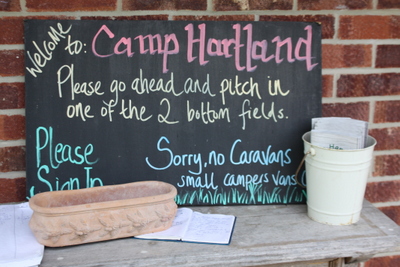 Welcome
to: Camp Hartland
Please go ahead and pitch in
one of the 2 bottom fields.
Please
Sign In
Sorry, no Caravans
small campers vans